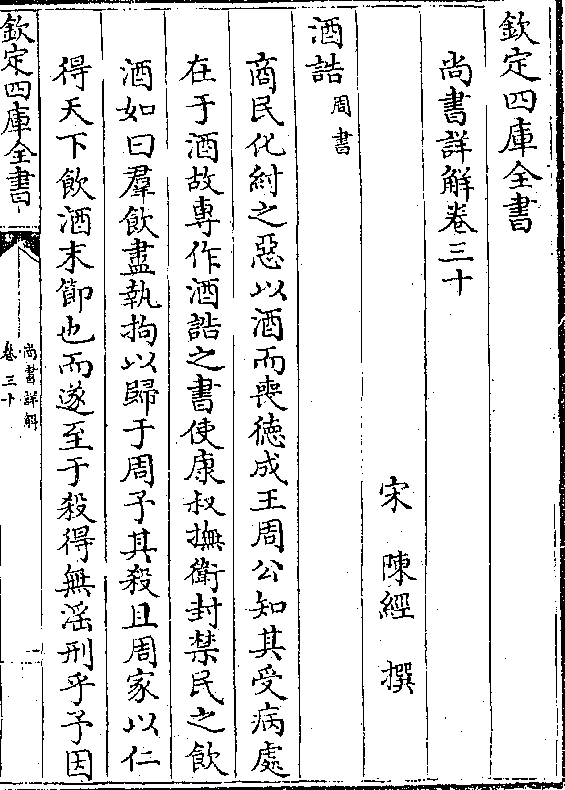 欽定四庫全書
尚書詳解卷三十
宋　陳經　撰
酒誥周書
商民化紂之惡以酒而喪德成王周公知其受病處
在于酒故專作酒誥之書使康叔撫衛封禁民之飲
酒如曰羣飲盡執拘以歸于周予其殺且周家以仁
得天下飲酒末節也而遂至于殺得無淫刑乎予因
欽定四庫全書
尚書詳解
卷三十
一